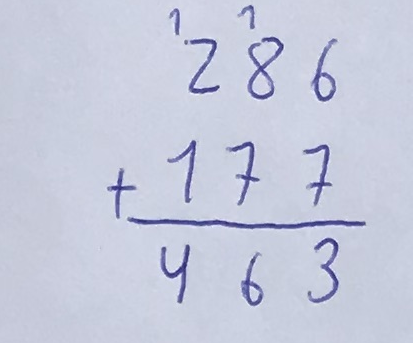 1 1
286
+ 177
463